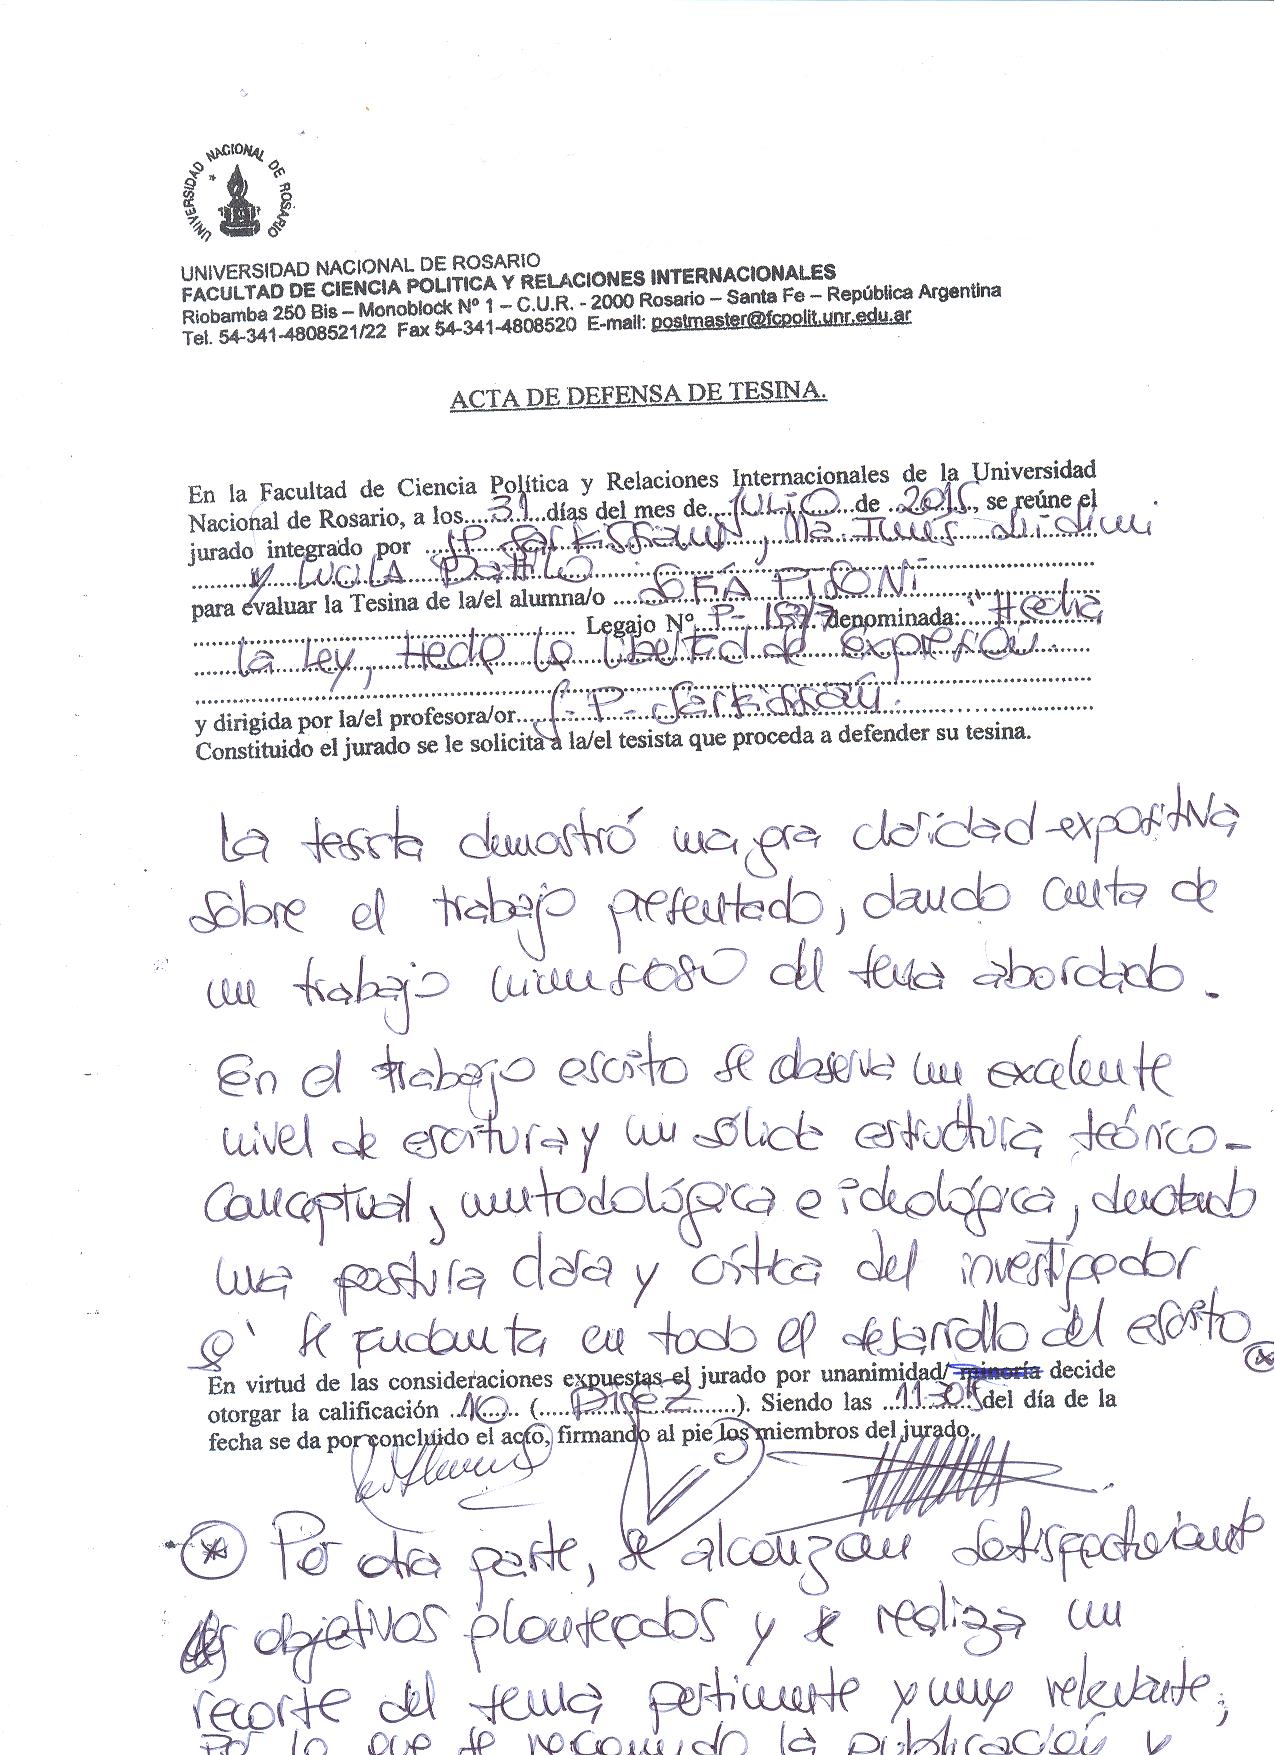 UNIVERSIDAD NACIONAL DE ROSARIO
UNIVERSIDAD NACIONAL DE ROSARIO
FACULTAD DE CIENCIA POLITICA Y RELACIONES INTERNACIONALES
Riobamba 250 Bis – Monoblock Nº 1 – C.U.R. - 2000 Rosario – Santa Fe – República Argentina
Tel. 54-341-4808521/22 Fax 54-341-4808520 E-mail: postmaster@fcpolit.unr.edu.ar
ACTA DE DEFENSA DE TESINA.
En la Facultad de Ciencia Política y Relaciones Internacionales de la Universidad
Nacional de Rosario, a los....31...días del mes de...JULIO...de .2015., se reúne el
jurado integrado por ...J.P. Sarkissian, Ma. Ines
y LUCILA
para evaluar la Tesina de la/el alumna/o ....SOFÍA PISONI
Legajo Nº..P- denominada:....."Hecha
la Ley, Hecha la libertad de expresión.
y dirigida por la/el profesora/or....J.P. Sarkissian.
Constituido el jurado se le solicita a la/el tesista que proceda a defender su tesina.
La tesista demostró una gra claridad expositiva
sobre el trabajo presentado, dando cuenta de
un trabajo minucioso del tema abordado.
En el trabajo escrito se observa un excelente
nivel de escritura y un sólida estructura teórico-
conceptual, metodológica e ideológica, denotando
una postura clara y crítica del investigador
q' se fundamenta en todo el desarrollo del escrito
En virtud de las consideraciones expuestas el jurado por unanimidad/ minoría decide
otorgar la calificación ..10..... (.....DIEZ.......). Siendo las ..11.30h del día de la
fecha se da por concluido el acto, firmando al pie los miembros del jurado.
* Por otra parte, se alcanzan satisfactoriamente
los objetivos planteados y se realiza un
recorte del tema pertinente y muy relevante,
por lo que se recomienda la publicación y